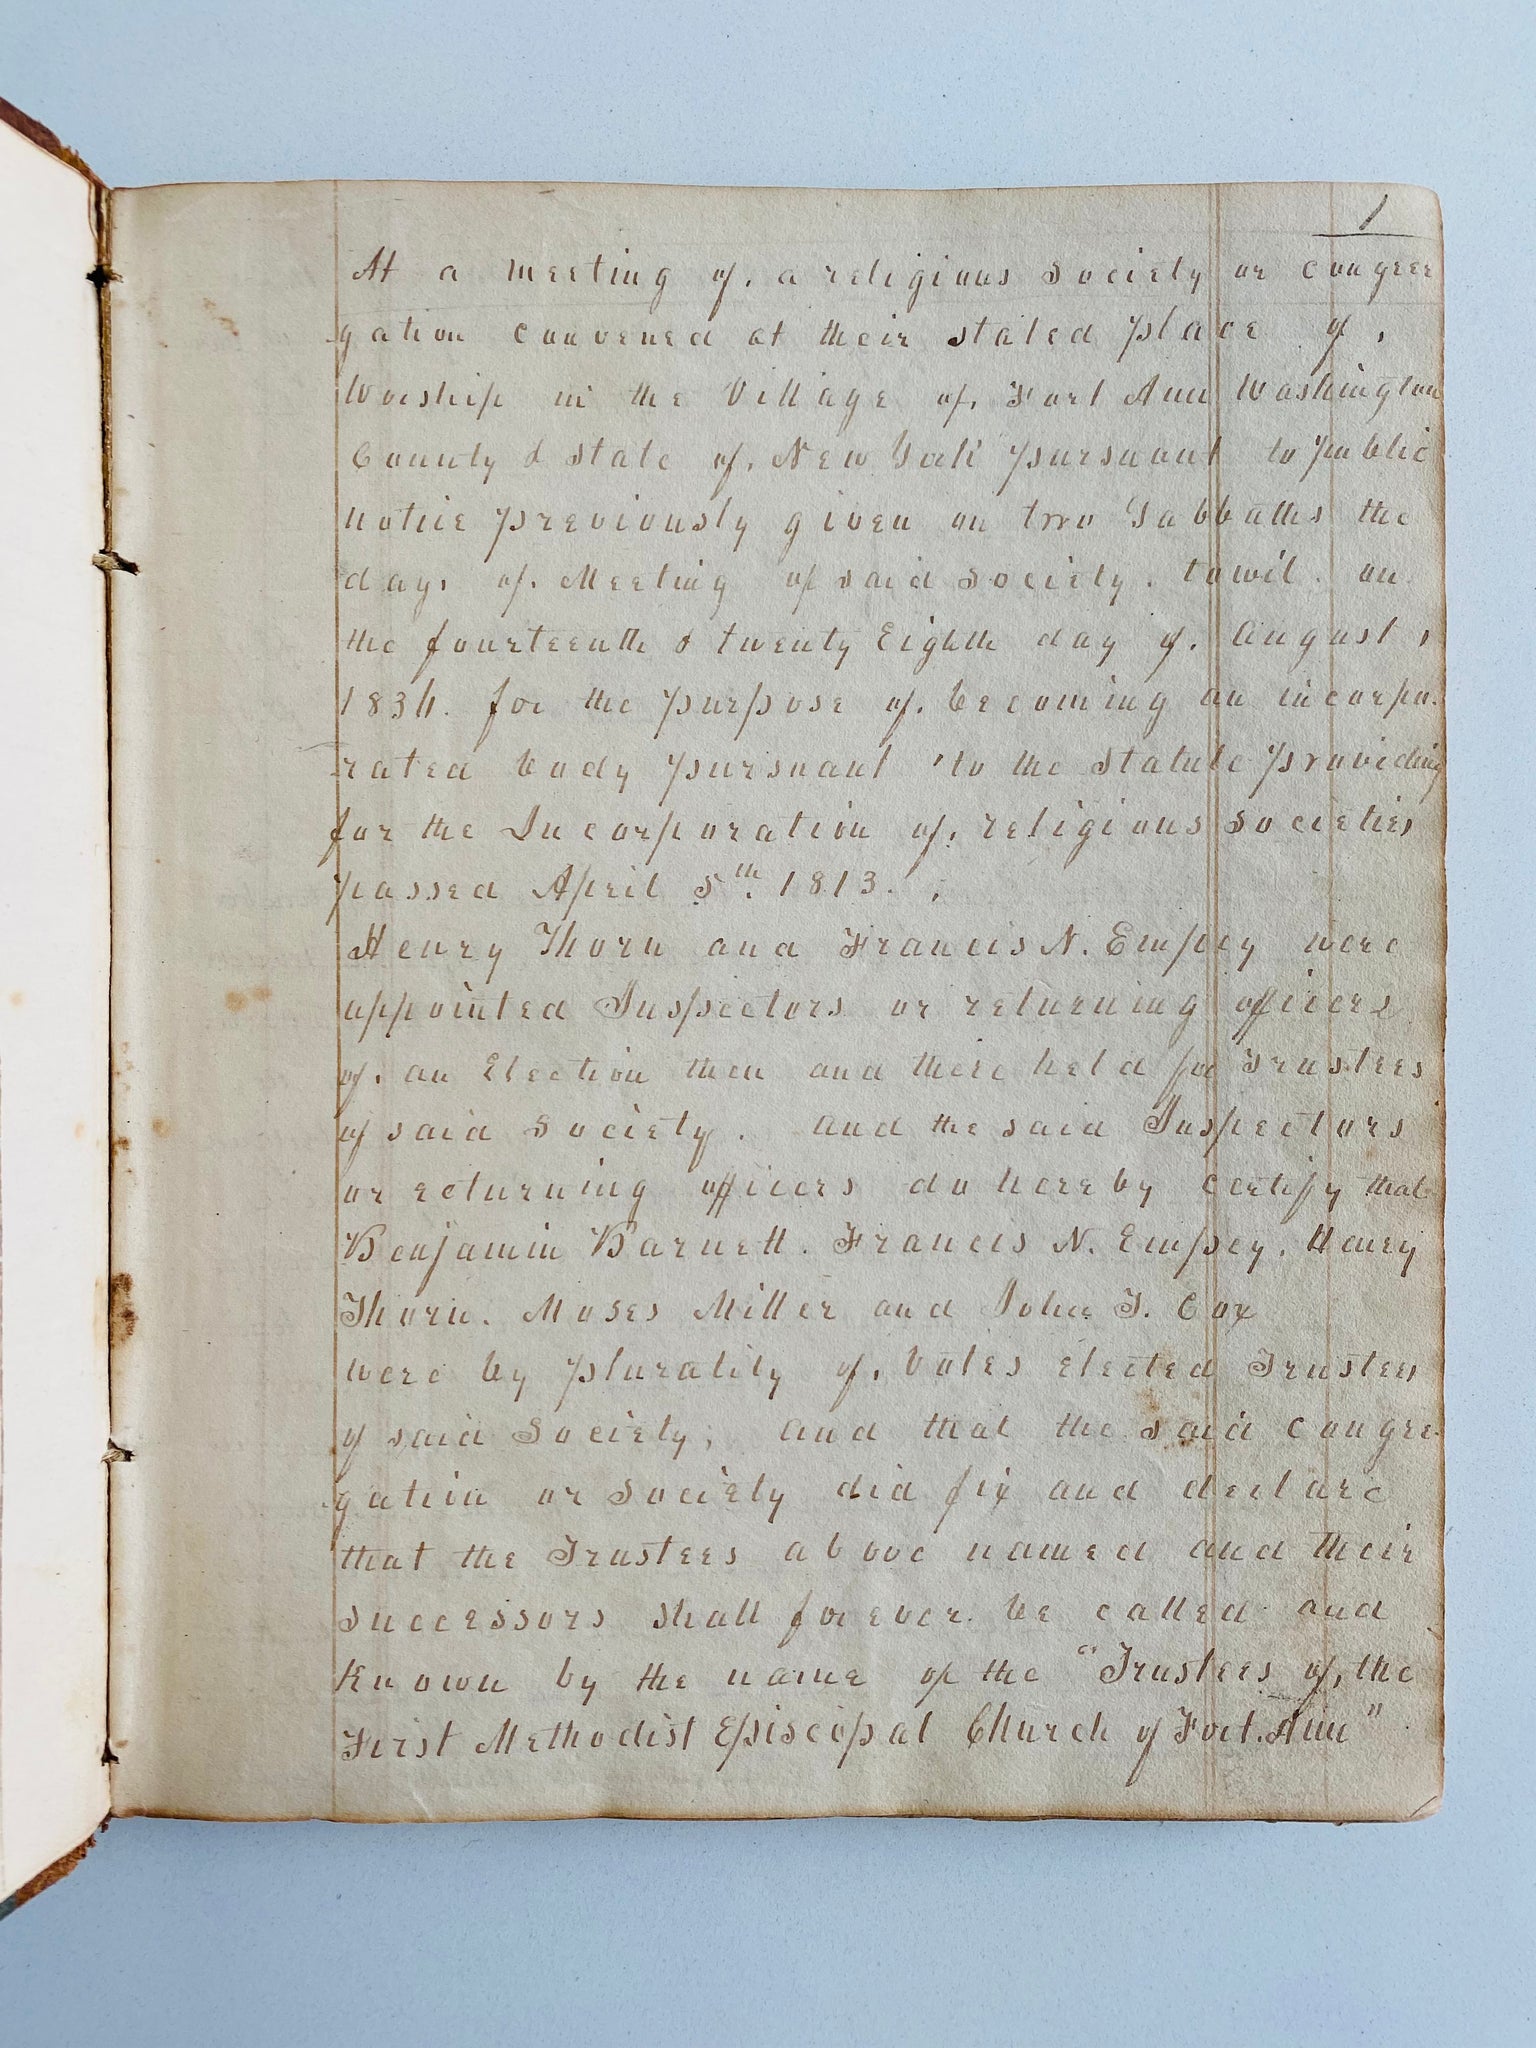 1
At a meeting of. a religious society or congree
gation convened at their stated place of,
Worship in the Village of, Fort Ann Washington
County & State of, New York pursuant to public
notice previously given on two Sabbaths the
days of. Meeting of said society. towit. on
the fourteenth & twenty Eighth day of. August,
1834. for the purpose of. becoming an incorpo.
rated body pursuant to the Statute providing
for the Incorporation of, religious societies
passed April 5th. 1813.
Henry Thorn and Francis N. Empey were
appointed Inspectors or returning officers
of. an Election then and there held for Trustees
of said Society. and the said Inspectors
or returning officers do hereby certify that
Benjamin Barnett. Francis N. Empey. Henry
Thorn. Moses Miller and John T. Cox
were by plurality of, Votes elected Trustees
of said Society; and that the said congree
gation or Society did fix and declare
that the Trustees above named and their
successors shall for ever be called and
known by the name of the "Trustees of, the
First Methodist Episcopal Church of Fort. Ann"